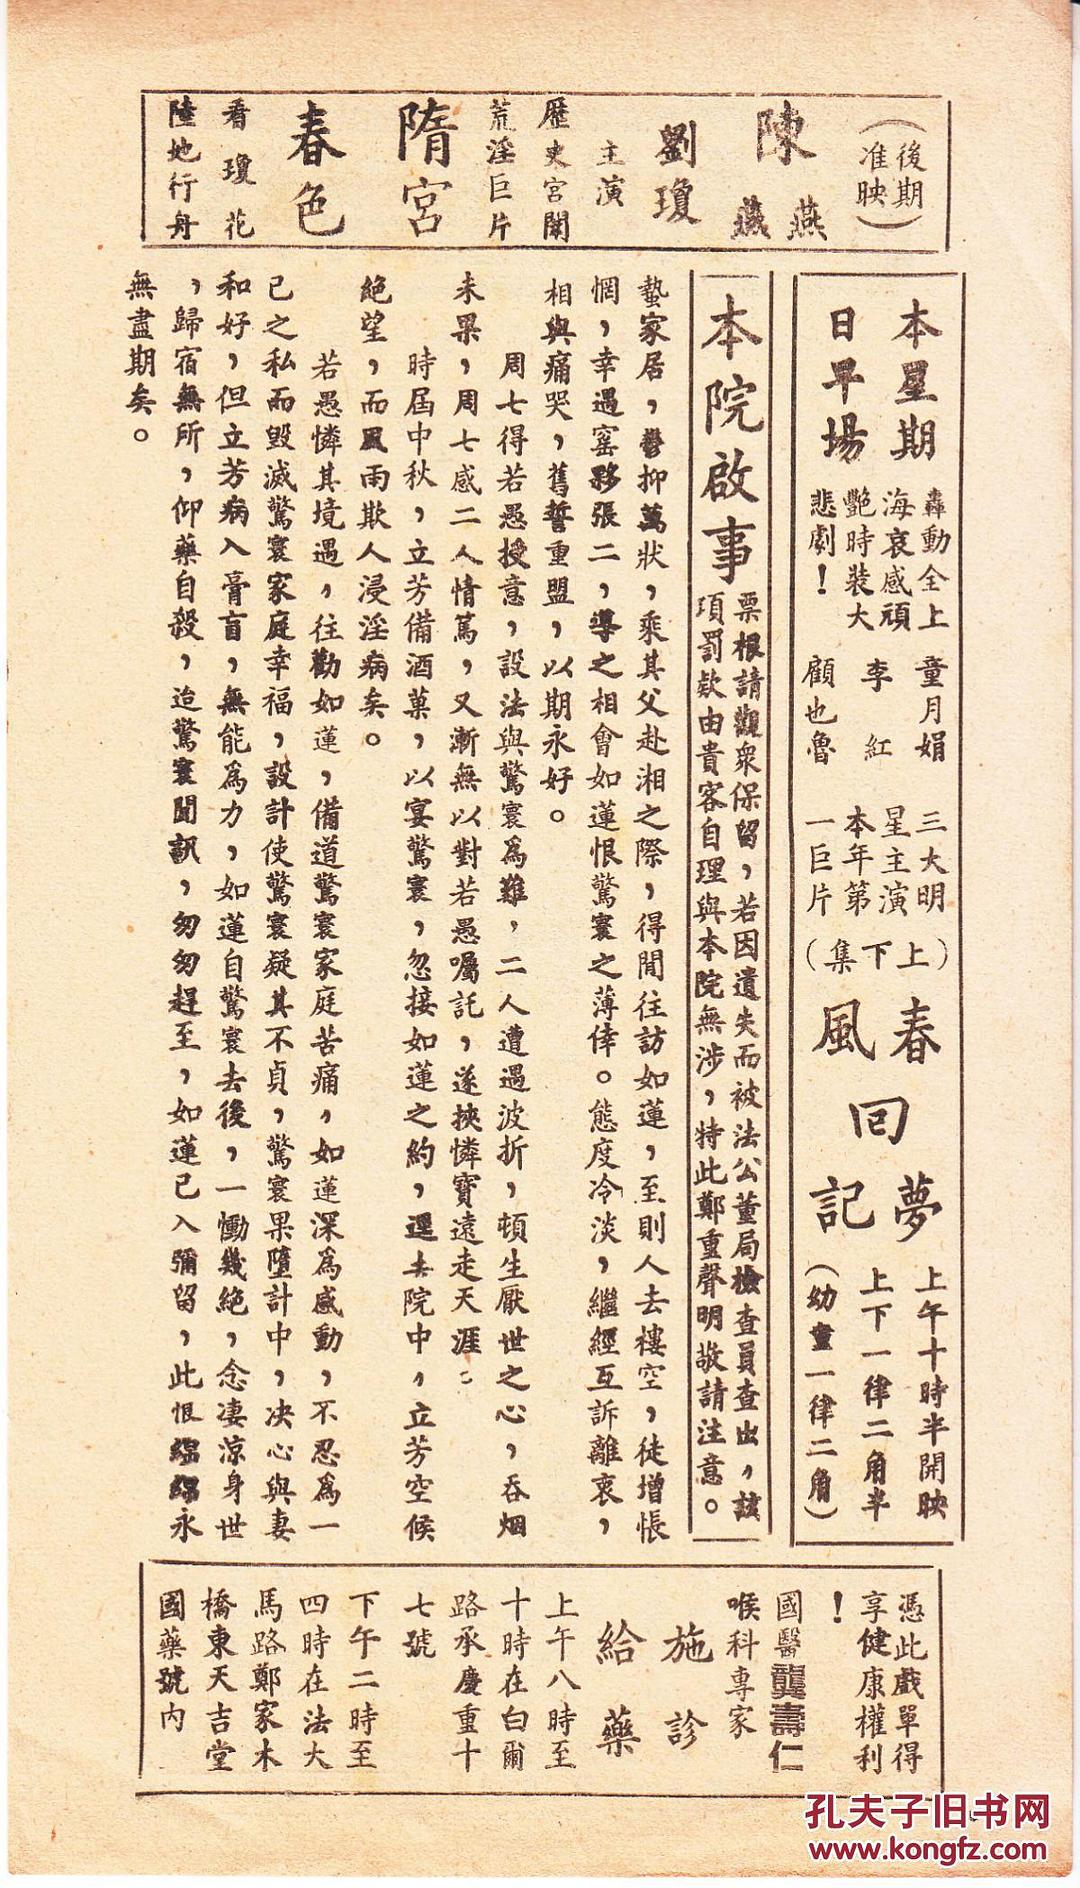 （後期
准映）
陳
燕
燕
劉瓊
主演
歷史宮闈
荒淫巨片
隋宮
春色
看瓊花
陸地行舟
本星期
日早場
轟動全上
海哀感頑
艷時裝大
悲劇！
童月娟
李紅
顧也魯
三大明
星主演
本年第
一巨片
（上下集）
春
風
回
夢
記
上午十時半開映
上下一律二角半
（幼童一律二角）
本院啟事
票根請觀衆保留，若因遺失而被法公董局檢查員查出，該
項罰欵由貴客自理與本院無涉，特此鄭重聲明敬請注意。
蟄家居，鬱抑萬狀，乘其父赴湘之際，得間往訪如蓮，至則人去樓空，徒增悵
惘，幸遇窰夥張二，導之相會如蓮恨驚寰之薄倖。態度冷淡，繼經互訴離衷，
相與痛哭，舊誓重盟，以期永好。
周七得若愚授意，設法與驚寰爲難，二人遭遇波折，頓生厭世之心，吞烟
未果，周七感二人情篤，又漸無以對若愚囑託，遂挾憐寶遠走天涯：
時屆中秋，立芳備酒菓，以宴驚寰，忽接如蓮之約，逕去院中，立芳空候
絕望，而風雨欺人浸淫病矣。
若愚憐其境遇，往勸如蓮，備道驚寰家庭苦痛，如蓮深爲感動，不忍爲一
已之私而毀滅驚寰家庭幸福，設計使驚寰疑其不貞，驚寰果墮計中，决心與妻
和好，但立芳病入膏盲，無能爲力，如蓮自驚寰去後，一慟幾絕，念凄涼身世
，歸宿無所，仰藥自殺，迨驚寰聞訊，匆匆趕至，如蓮已入彌留，此恨綿綿永
無盡期矣。
憑此戲單得
享健康權利
！
國醫龔壽仁
喉科專家
施診
給藥
上午八時至
十時在白爾
路承慶里十
七號
下午二時至
四時在法大
馬路鄭家木
橋東天吉堂
國藥號內
孔夫子旧书网
www.kongfz.com